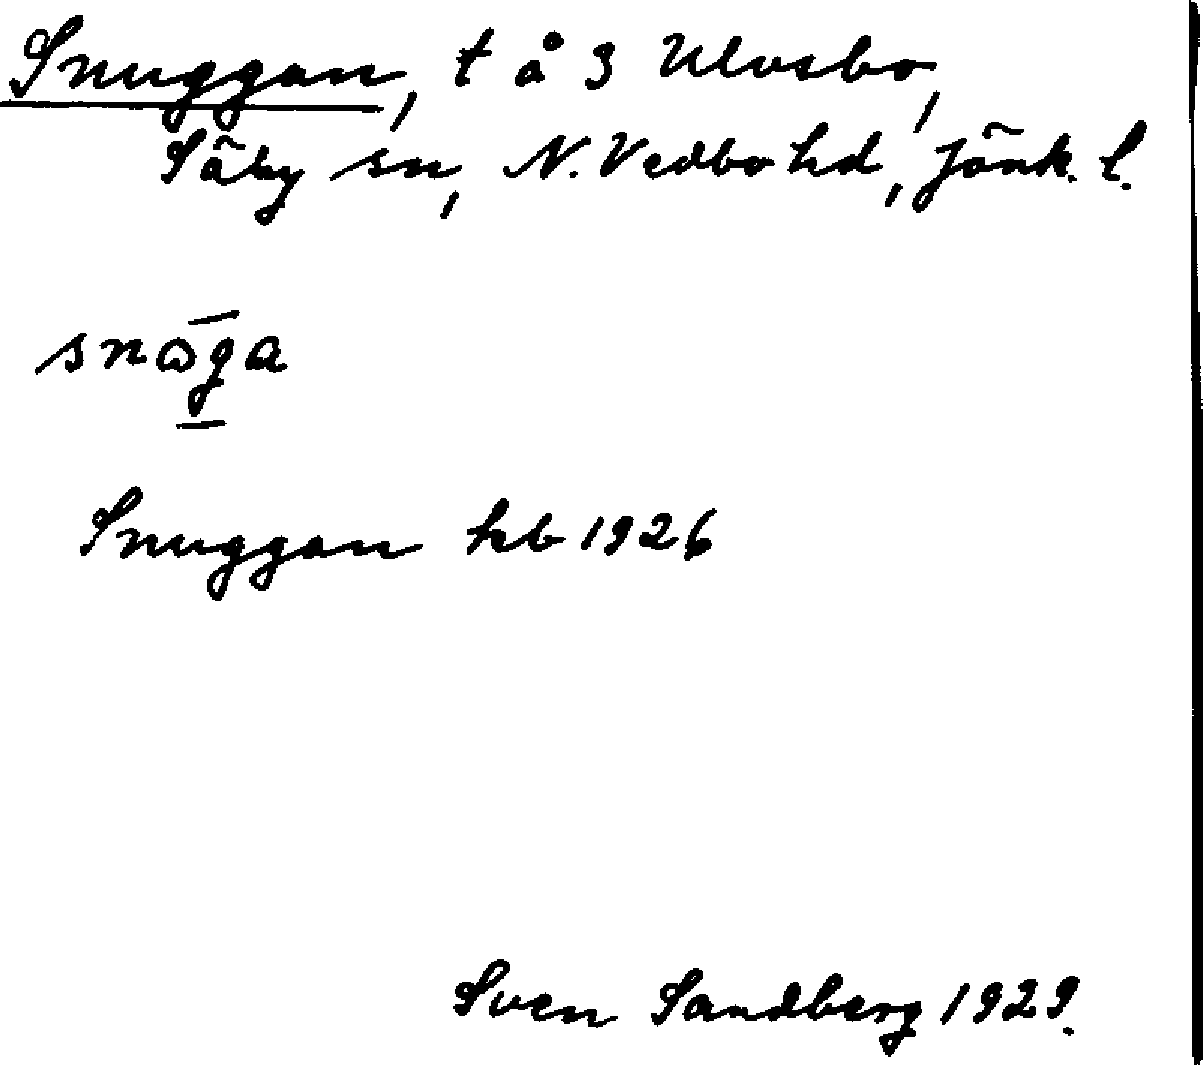 Snuggan, t å 3 Ulvsbo,
Säby sn, N. Vedbo hd, Jönk. l.
Snuggan hb 1926
Sven Sandberg 1929.